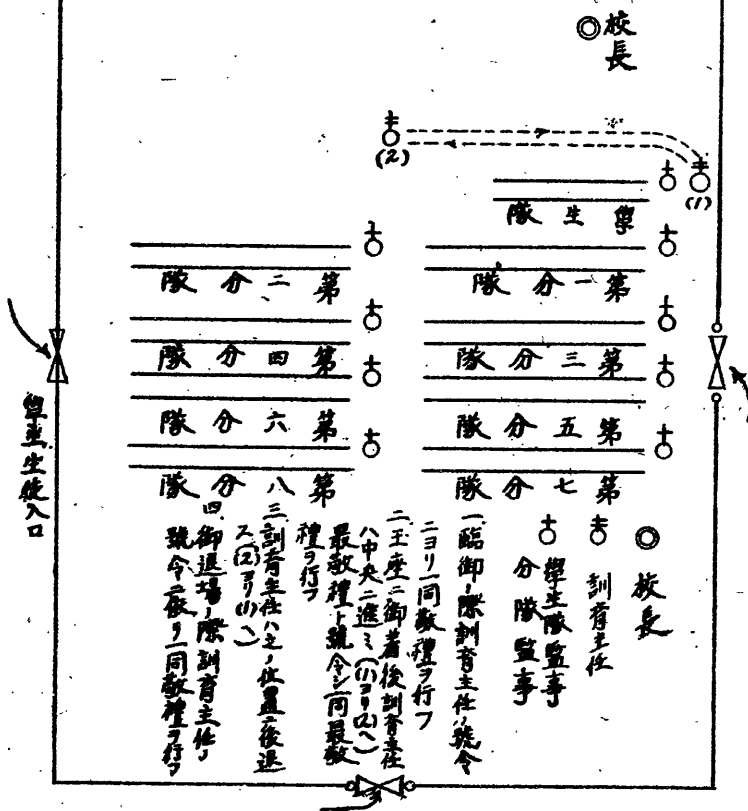 校長
(2)
(1)
學生隊
第一分隊
第二分隊
第三分隊
第四分隊
第五分隊
第六分隊
第七分隊
第八分隊
學生生徒入口
校長
訓育主任
學生隊監事
分隊監事
一、臨御ノ際訓育主任ノ號令
ニヨリ一同敬禮ヲ行フ
二、玉座ニ御着後訓育主任
ハ中央ニ進ミ((1)ヨリ(2)ヘ)
最敬禮ト號令シ一同最敬
禮ヲ行フ
三、訓育主任ハ之ノ位置ニ後退
ス((2)ヨリ(1)ヘ)
四、御退場ノ際訓育主任ノ
號令ニ依リ一同敬禮ヲ行フ